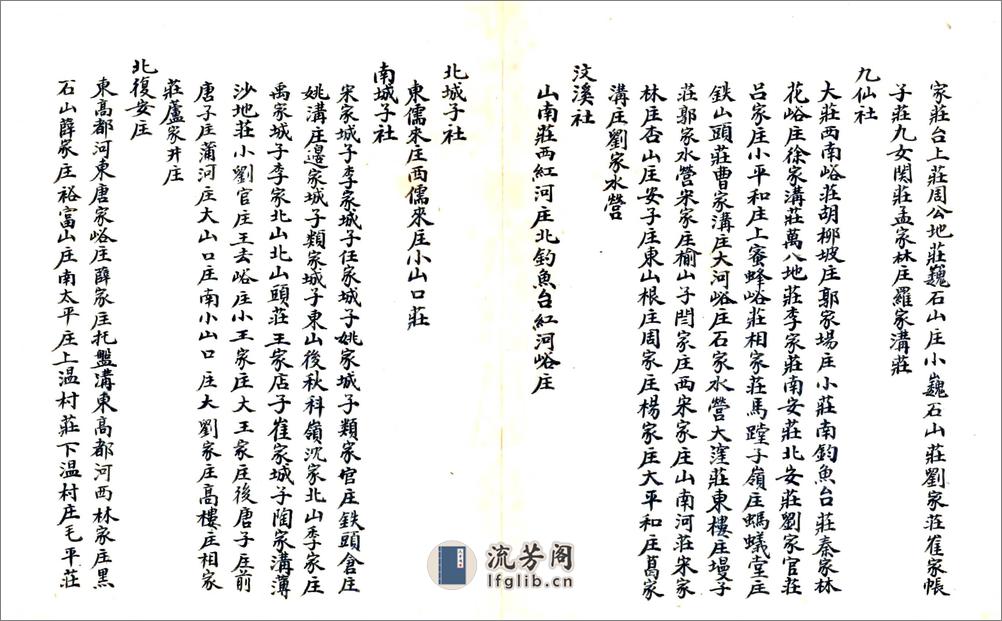 家莊台上莊周公地莊巍石山庄小巍石山莊劉家莊崔家帳
子莊九女関莊孟家林庄羅家溝莊
九仙社
大莊西南峪莊胡柳坡庄郭家場庄小莊南釣魚台莊秦家林
花峪庄徐家溝莊萬八地莊李家莊南安莊北安莊劉家官莊
呂家庄小平和庄上蜜蜂峪莊相家莊馬蹚子嶺庄螞蟻堂庄
鉄山頭莊曹家溝庄大河峪庄石家水營大窪莊東樓庄墁子
莊郭家水營宋家庄榆山子閆家庄西宋家庄山南河莊宋家
林庄杏山庄安子庄東山根庄周家庄楊家庄大平和庄葛家
溝庄劉家水營
汶溪社
山南莊西紅河庄北釣魚台紅河峪庄
北城子社
東儒來庄西儒來庄小山口莊
南城子社
宋家城子李家城子任家城子姚家城子類家官庄鉄頭倉庄
姚溝庄邊家城子類家城子東山後秋科嶺沈家北山季家庄
禹家城子李家北山北山頭莊王家店子崔家城子陶家溝薄
沙地莊小劉官庄王去峪庄小王家庄大王家庄後唐子庄前
唐子庄蒲河庄大山口庄南小山口庄大劉家庄高樓庄相家
莊蘆家井庄
北復安庄
東高都河東唐家峪庄薛家庄扥盤溝東高都河西林家庄黑
石山薛家庄裕富山庄南太平庄上温村莊下温村庄毛平莊
流芳阁
lfglib.cn